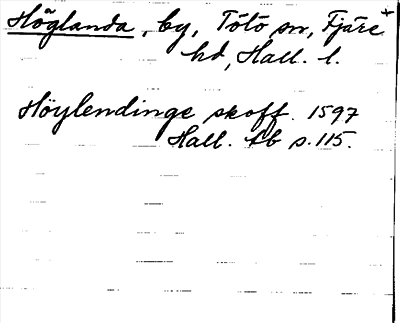 Höglanda, by, Tölö sn, Fjäre
hd, Hall. l.
Höylendinge skoff. 1597
Hall. tb s. 115.